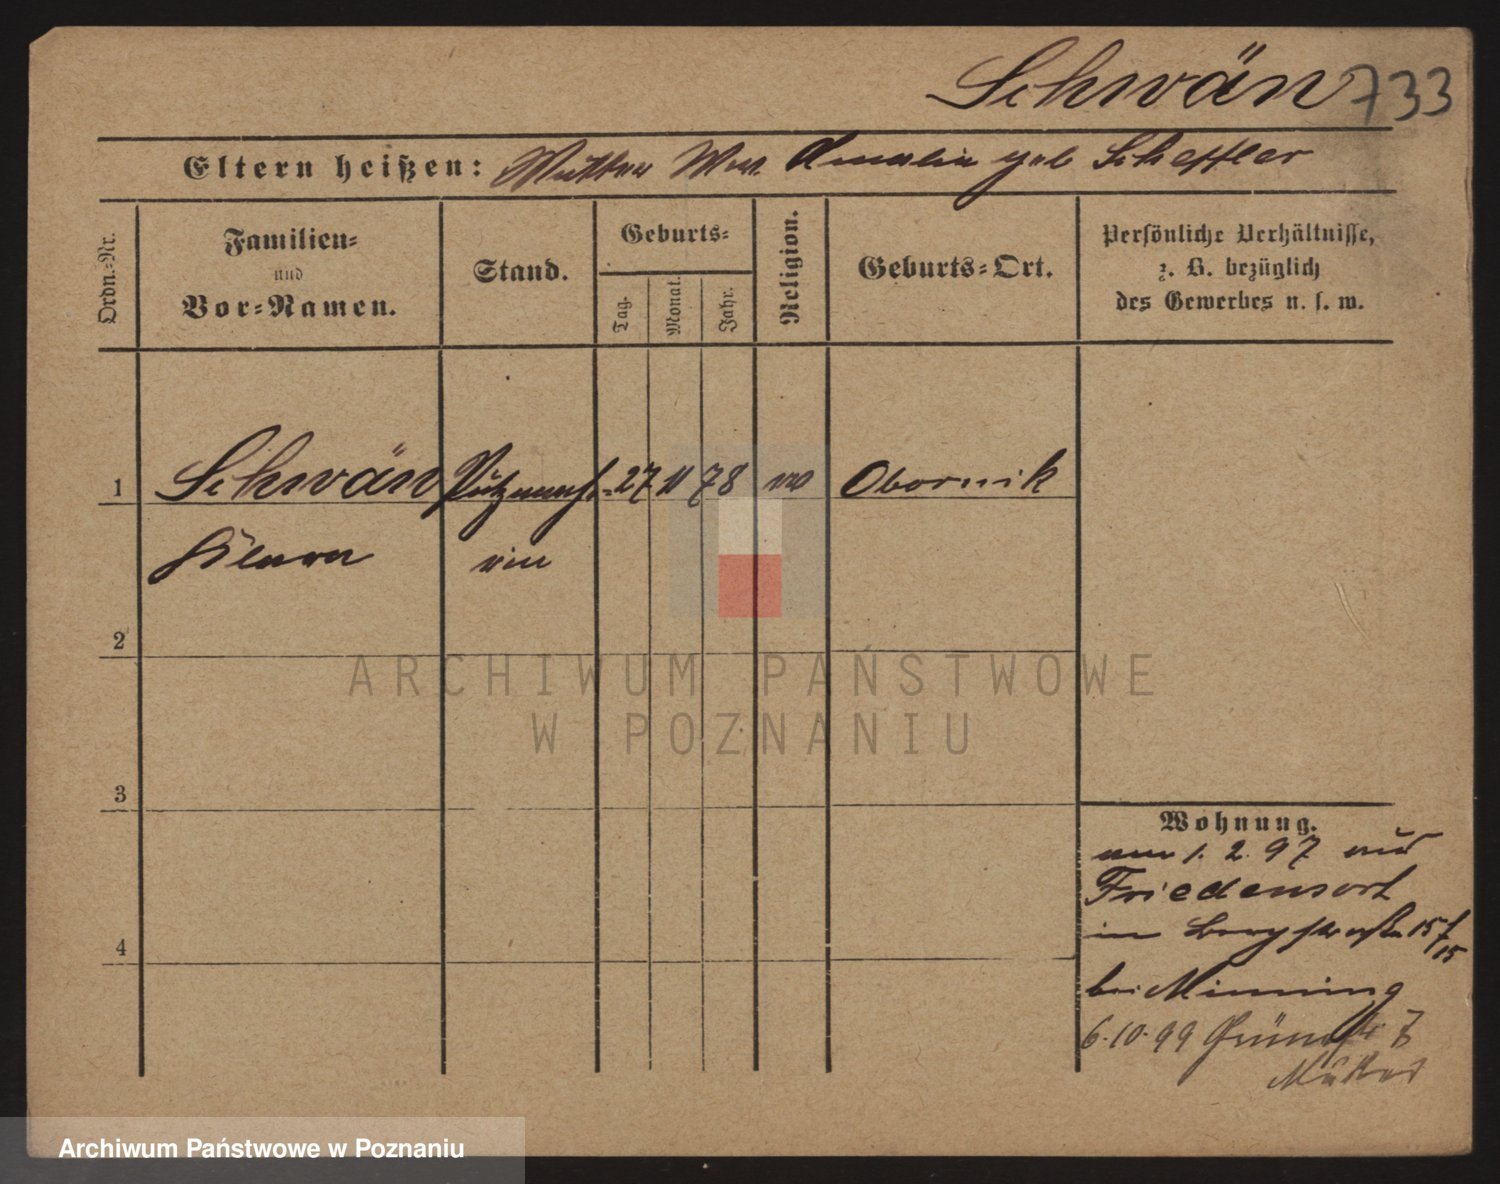 Schwän 733
Eltern heißen: Mutter Ww. Amalie geb Scheffler
Ordn.-Nr.
Familien-
und
Vor-Namen.
Stand.
Geburts-
Tag.
Monat.
Jahr.
Religion.
Geburts-Ort.
Persönliche Verhältnisse,
z. B. bezüglich
des Gewerbes u. s. w.
1 Schwän Putzmach- 27 11 78 Obornik
Klara rin
2
3
4
Wohnung.
am 1. 2. 97 aus
Friedensort
in Bergstraße 15
15
bei Minning
6.10.99 Grünstr 7
Mutter
ARCHIWUM PAŃSTWOWE
W POZNANIU
Archiwum Państwowe w Poznaniu